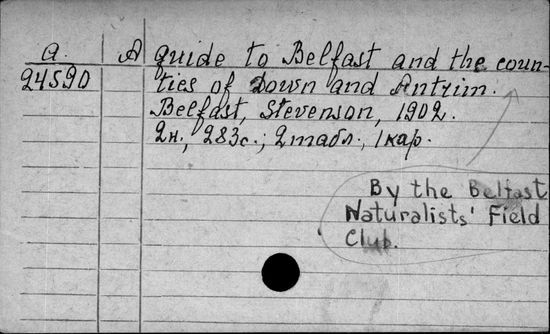 a. A guide to Belfast and the coun-
24590 ties of Down and Antrim.
Belfast, Stevenson, 1902.
2н., 283с.; 2табл., 1кар.
By the Belfast
Naturalists' Field
Club.